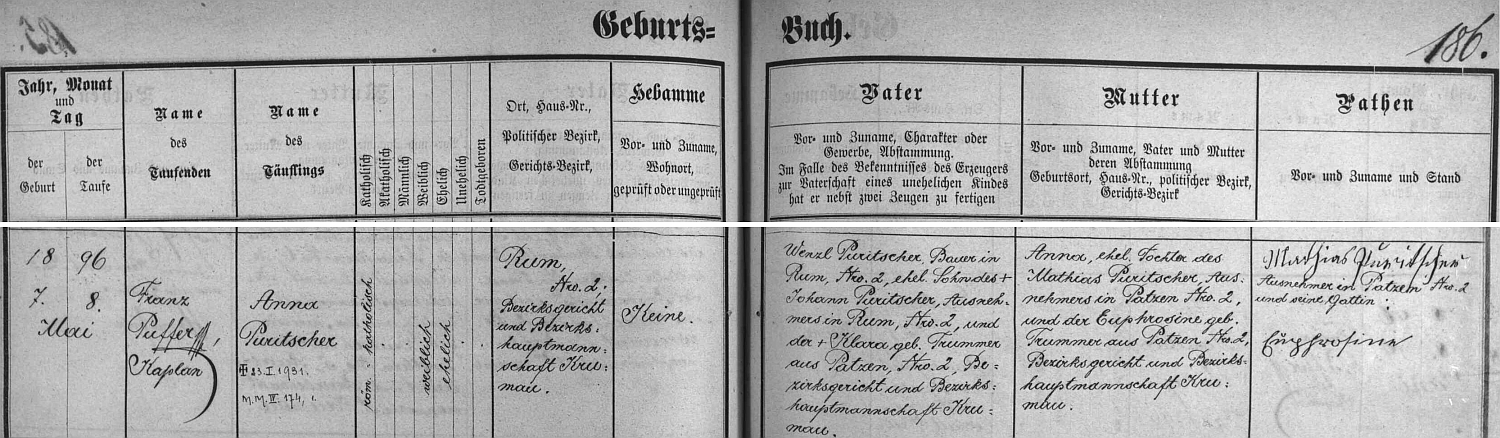 Geburts=
Buch.
186.
Jahr, Monat
und
Tag
der
Geburt
der
Taufe
Name
des
Taufenden
Name
des
Täuflings
Katholisch
Akatholisch
Männlich
Weiblich
Ehelich
Unehelich
Todtgeboren
Ort, Haus-Nr.,
Politischer Bezirk,
Gerichts-Bezirk,
Hebamme
Vor- und Zuname,
Wohnort,
geprüft oder ungeprüft
Vater
Vor- und Zuname, Charakter oder
Gewerbe, Abstammung.
Im Falle des Bekenntnisses des Erzeugers
zur Vaterschaft eines unehelichen Kindes
hat er nebst zwei Zeugen zu fertigen
Mutter
Vor- und Zuname, Vater und Mutter
deren Abstammung
Geburtsort, Haus-Nr., politischer Bezirk,
Gerichts-Bezirk
Pathen
Vor- und Zuname und Stand
18 96
7. 8.
Mai
Franz
Puffer,
Kaplan
Anna
Puritscher
✠ 23. I 1931.
röm.-katholisch
weiblich
ehelich
Rum,
Nro. 2.
Bezirksgericht
und Bezirks=
hauptmann=
schaft Kru=
mau.
Keine.
Wenzl Puritscher, Bauer in
Rum, Nro. 2, ehel. Sohn des +
Johann Puritscher, Ausneh=
mers in Rum, Nro. 2, und
der + Klara, geb. Trummer
aus Patzen, Nro. 2, Be=
zirksgericht und Bezirks=
hauptmannschaft Kru=
mau.
Anna, ehel. Tochter des
Mathias Puritscher, Aus=
nehmers in Patzen Nro. 2,
und der Euphrosine geb.
Trummer aus Patzen Nro. 2,
Bezirksgericht und Bezirks=
hauptmannschaft Kru=
mau.
Mathias Puritscher
Ausnehmer in Patzen Nro. 2
und seine Gattin
Euphrosine